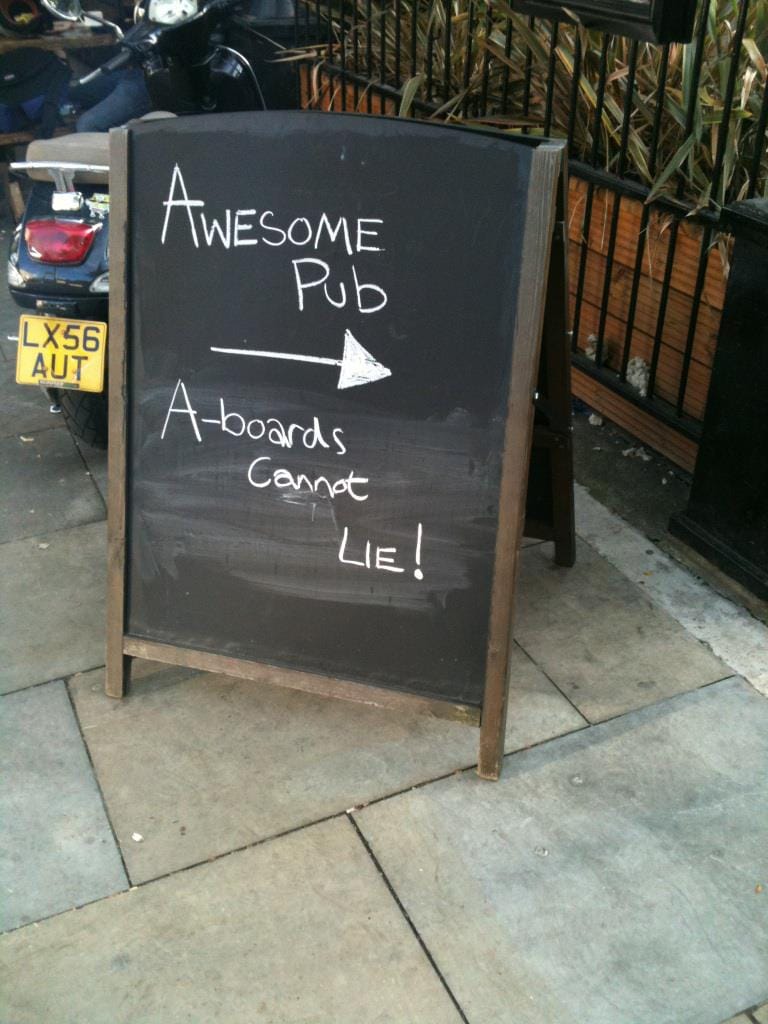 AWESOME
Pub
A-boards
Cannot
LIE!
LX56
AUT